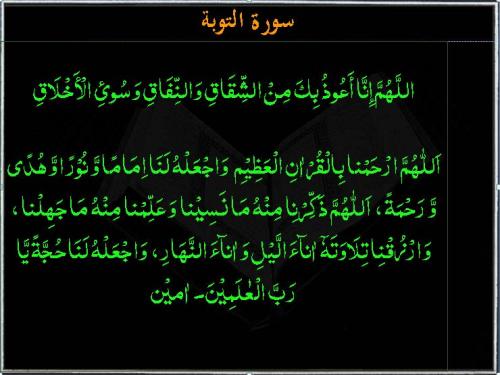 سورة التوبة
اللَّهُمَّ إِنَّا أَعُوذُ بِكَ مِنَ الشِّقَاقِ وَالنِّفَاقِ وَسُوئِ الْأَخْلَاقِ
اَللّٰهُمَّ ارْحَمْنا بِالْقُرْاٰنِ الْعَظِيْمِ وَاجْعَلْهُ لَنَا اِمَامًا وَّنُوْرًا وَّهُدًى
وَّرَحْمَةً، اَللّٰهُمَّ ذَكِّرْنِا مِنْهُ مَا نَسِيْنا وَعَلِّمْنا مِنْهُ مَا جَهِلْنا،
وَارْزُقْنِا تِلَاوَتَهٗ اٰنَآءَ الَّيْلِ وَاٰنَآءَ النَّهَارِ، وَاجْعَلْهُ لَنَا حُجَّةً يَّا
رَبَّ الْعٰلَمِيْنَ۔ اٰمِيْن